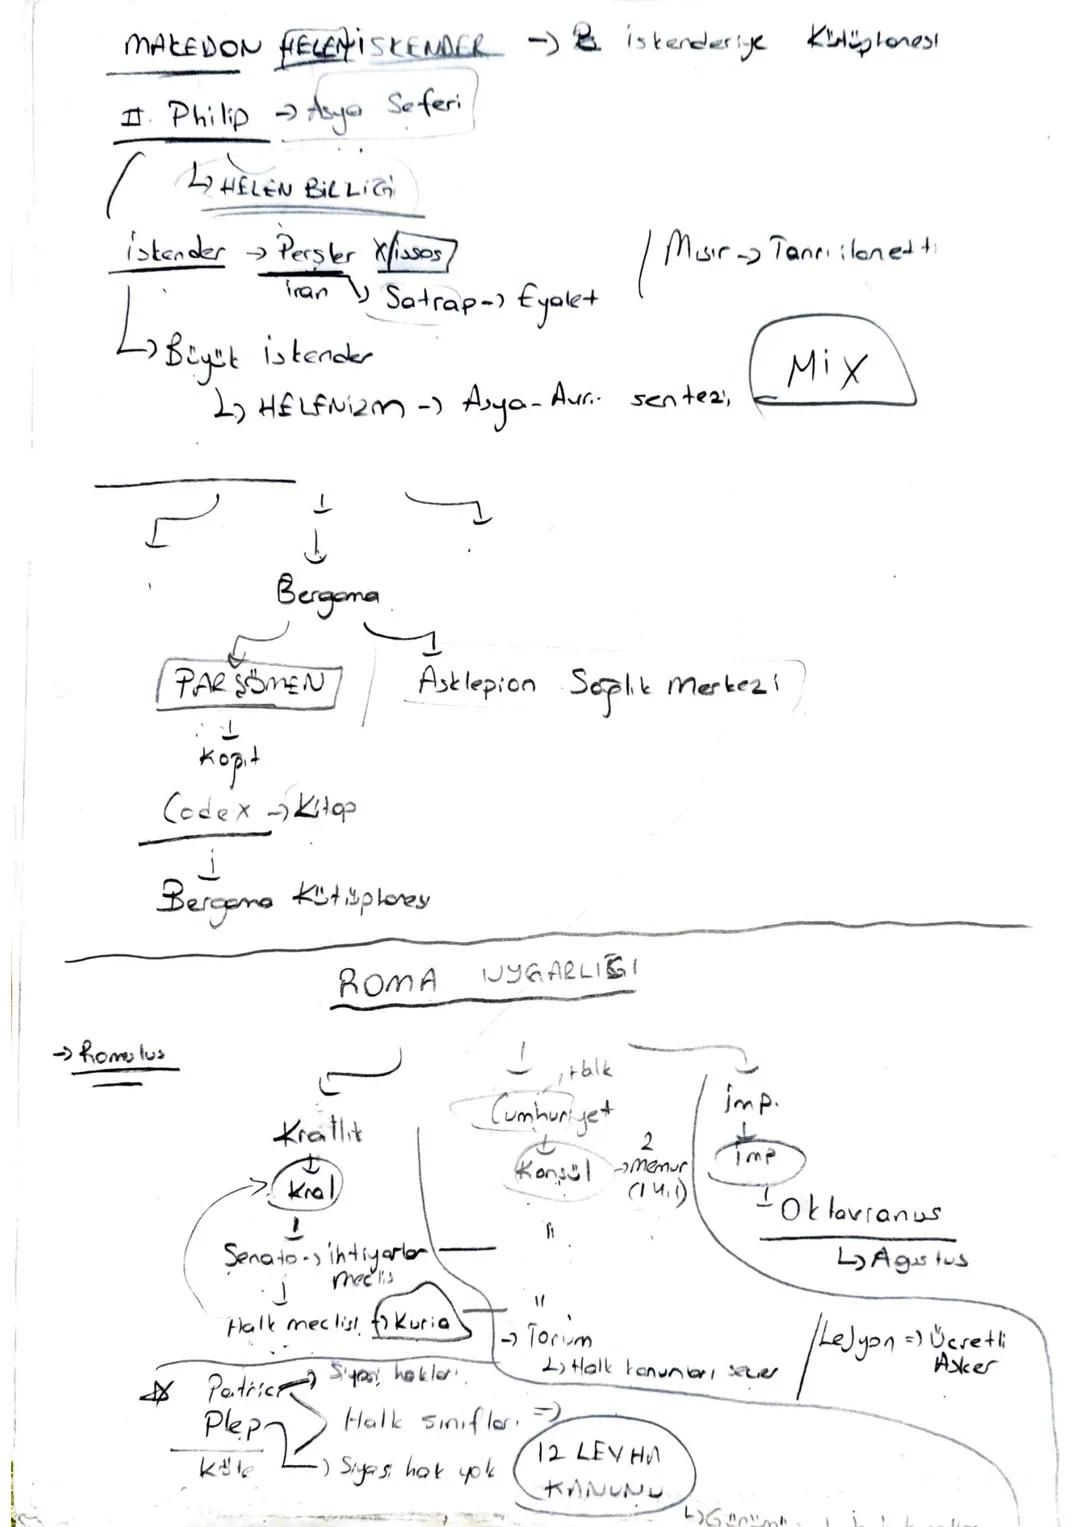 MAKEDON HELEN İSKENDER → İskenderiye Kütüphanesi
II. Philip → Asya Seferi
↳ HELEN BİRLİĞİ
İskender → Persler X/issos / Mısır → Tanrı ilan etti
iran ↳ Satrap → Eyalet
↳ Büyük iskender
MİX
↳ HELENİZM → Asya-Avr. sentezi
Bergama
PARŞÖMEN Asklepion Sağlık Merkezi
Kağıt
Codex → Kitap
Bergama Kütüphanesi
ROMA UYGARLIĞI
→ Romulus
Krallık
Kral
Senato → ihtiyarlar meclis
Halk meclisi → Kuria
Halk
Cumhuriyet
Konsül → 2 Memur (1 yıl)
"
"
→ Torum
↳ Halk kanunları seçer
imp.
imp
Oktavianus
↳ Agustus
/ Lejyon => Ücretli Asker
Patrici → Siyasi hakları
Plep Halk sınıfları =>
Köle → Siyasi hak yok
12 LEVHA KANUNU